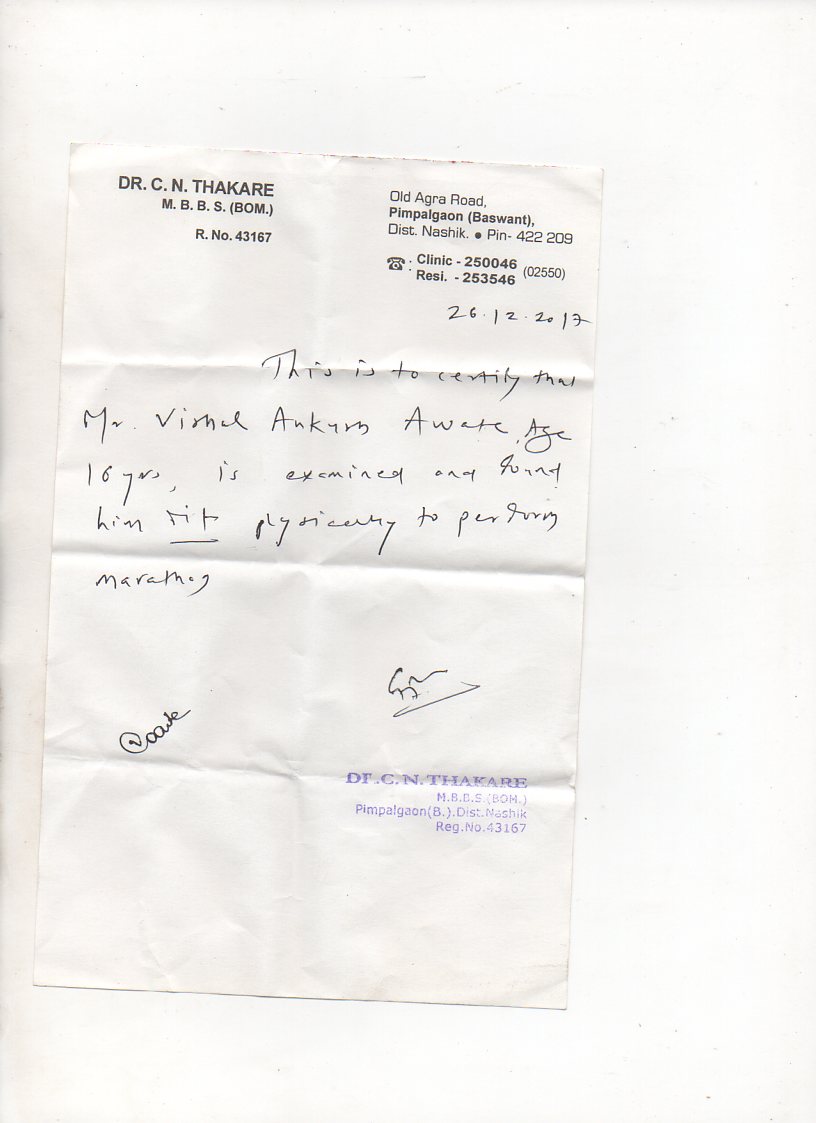 DR. C. N. THAKARE
M. B. B. S. (BOM.)
R. No. 43167
Old Agra Road,
Pimpalgaon (Baswant),
Dist. Nashik. ● Pin- 422 209
☎ : Clinic - 250046
: Resi. - 253546 (02550)
26.12.2017
This is to certify that
Mr. Vishal Ankush Aware, Age
16 yrs, is examined and found
him fit physically to perform
marathon
DR.C.N.THAKARE
M.B.B.S.(BOM.)
Pimpalgaon(B.).Dist.Nashik
Reg.No.43167